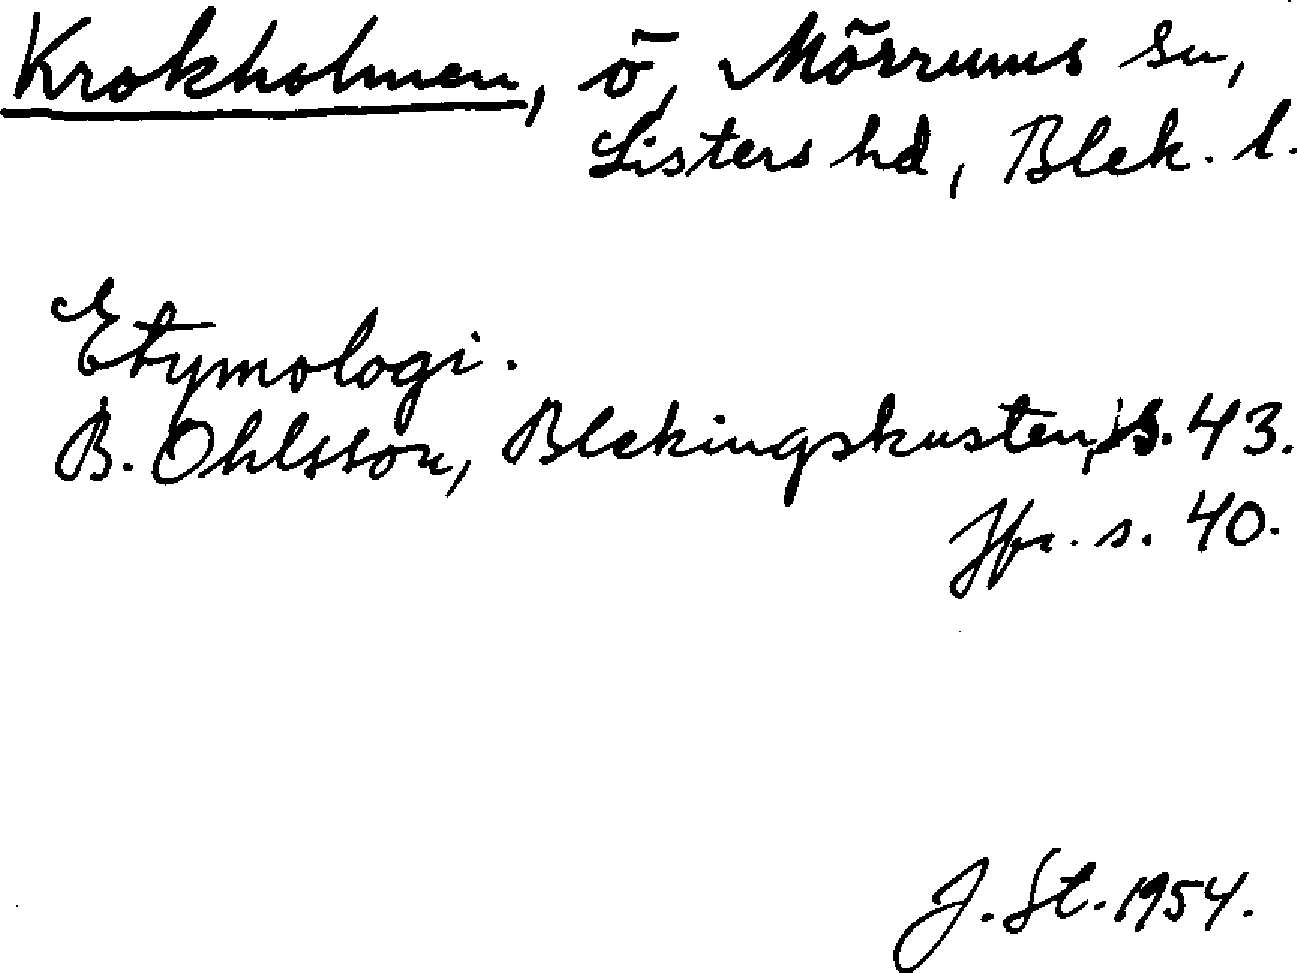 Krokholmen, ö, Mörrums sn,
Listers hd, Blek. l.
Etymologi.
B. Ohlsson, Blekingskusten, s. 43.
Jfr. s. 40.
J. St. 1954.